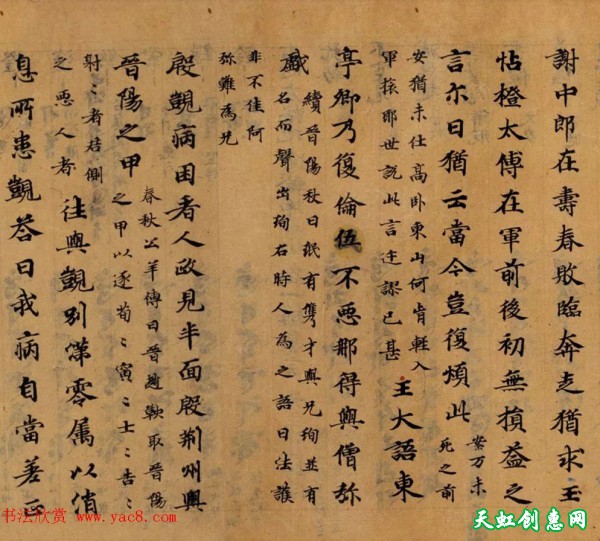 謝中郎在壽春敗臨奔走猶求玉
帖橙太傅在軍前後初無損益之
言尒日猶云當今豈復煩此
案万未
死之前
安猶未仕高卧東山何肯輕入
軍旅耶世說此言迂謬已甚
王大語東
亭卿乃復倫伍不惡那得與僧弥
戲
續晉陽秋曰珉有儁才與兄珣並有
名而聲出珣右時人為之語曰法護
非不佳阿
弥難為兄
殷覬病困看人政見半面殷荊州興
晉陽之甲
春秋公羊傳曰晉趙鞅取晉陽
之甲以逐荀〻寅〻士〻吉〻
射〻者君側
之惡人者
往與覬別涕零属以消
息所患覬荅曰我病自當差正
书法欣赏 www.yac8.com
天虹创惠网